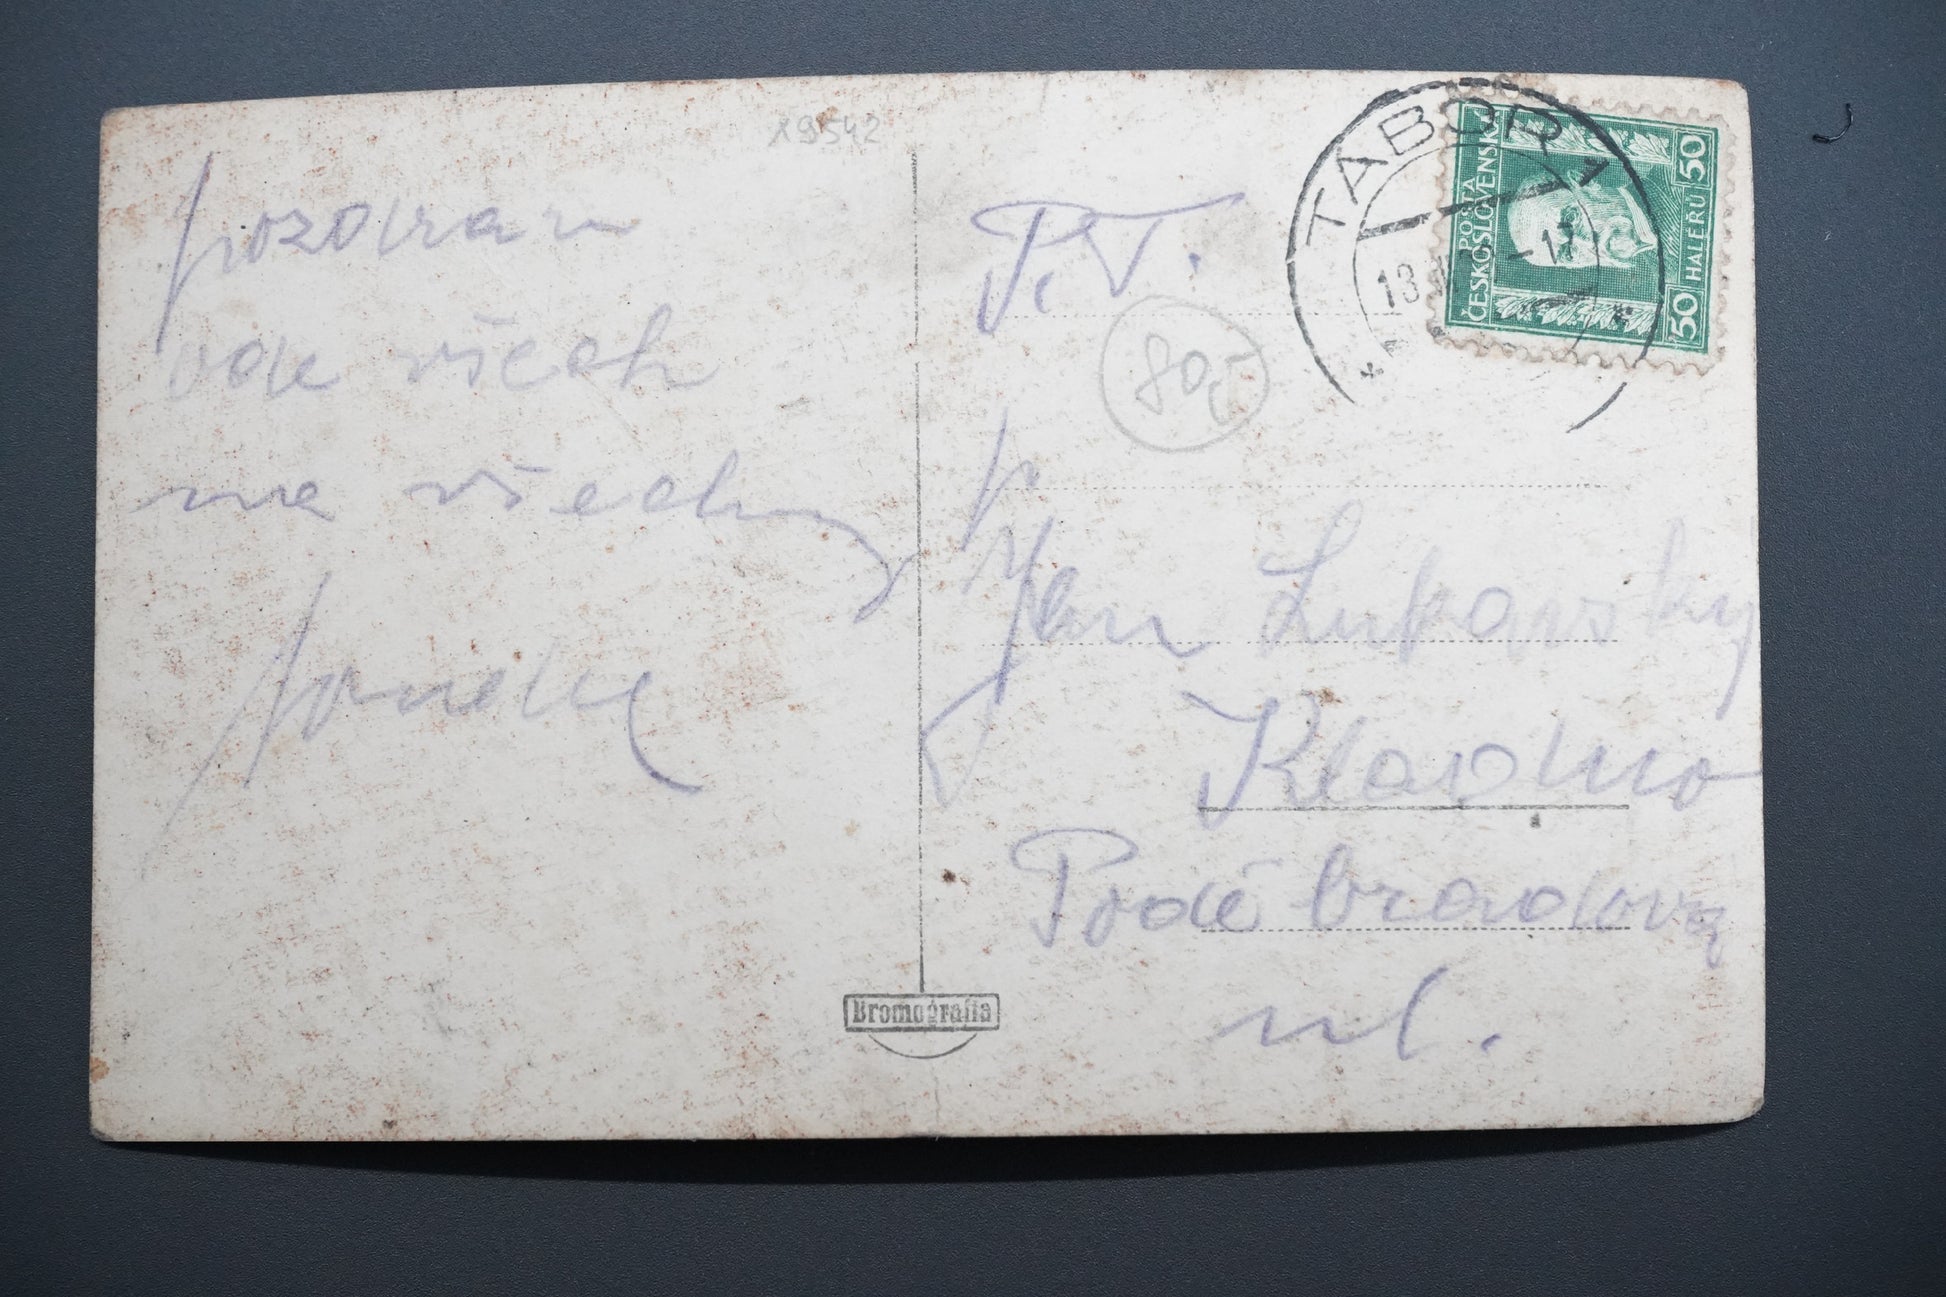 19542
pozdrav
ode všech
na všechny
P.T.
80,-
p
Jan Lukavský
Kladno
Poděbradova
ul.
TÁBOR 1
18
-17
POŠTA
ČESKOSLOVENSKÁ
50 HALÉŘŮ 50
Bromografia